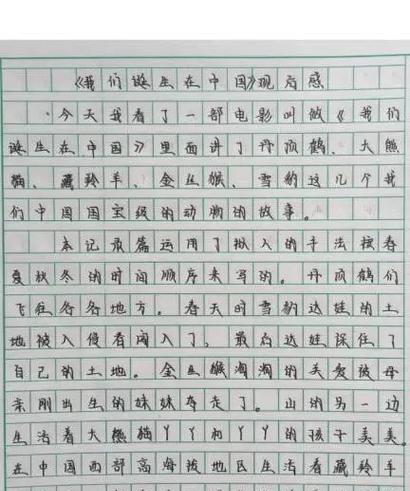 《我们诞生在中国》观后感
今天我看了一部电影叫做《我们
诞生在中国》里面讲了丹顶鹤、大熊
猫、藏羚羊、金丝猴、雪豹这几个我
们中国国宝级的动物的故事。
本记录篇运用了拟人的手法按春
夏秋冬的时间顺序来写的。丹顶鹤们
飞往各各地方。春天时雪豹达娃的土
地被入侵者闯入了,最后达娃保住了
自己的土地。金丝猴淘淘的关爱被母
亲刚出生的妹妹夺走了。山的另一边
生活着大熊猫丫丫和丫丫的孩子美美。
在中国西部高海拔地区生活着藏羚羊